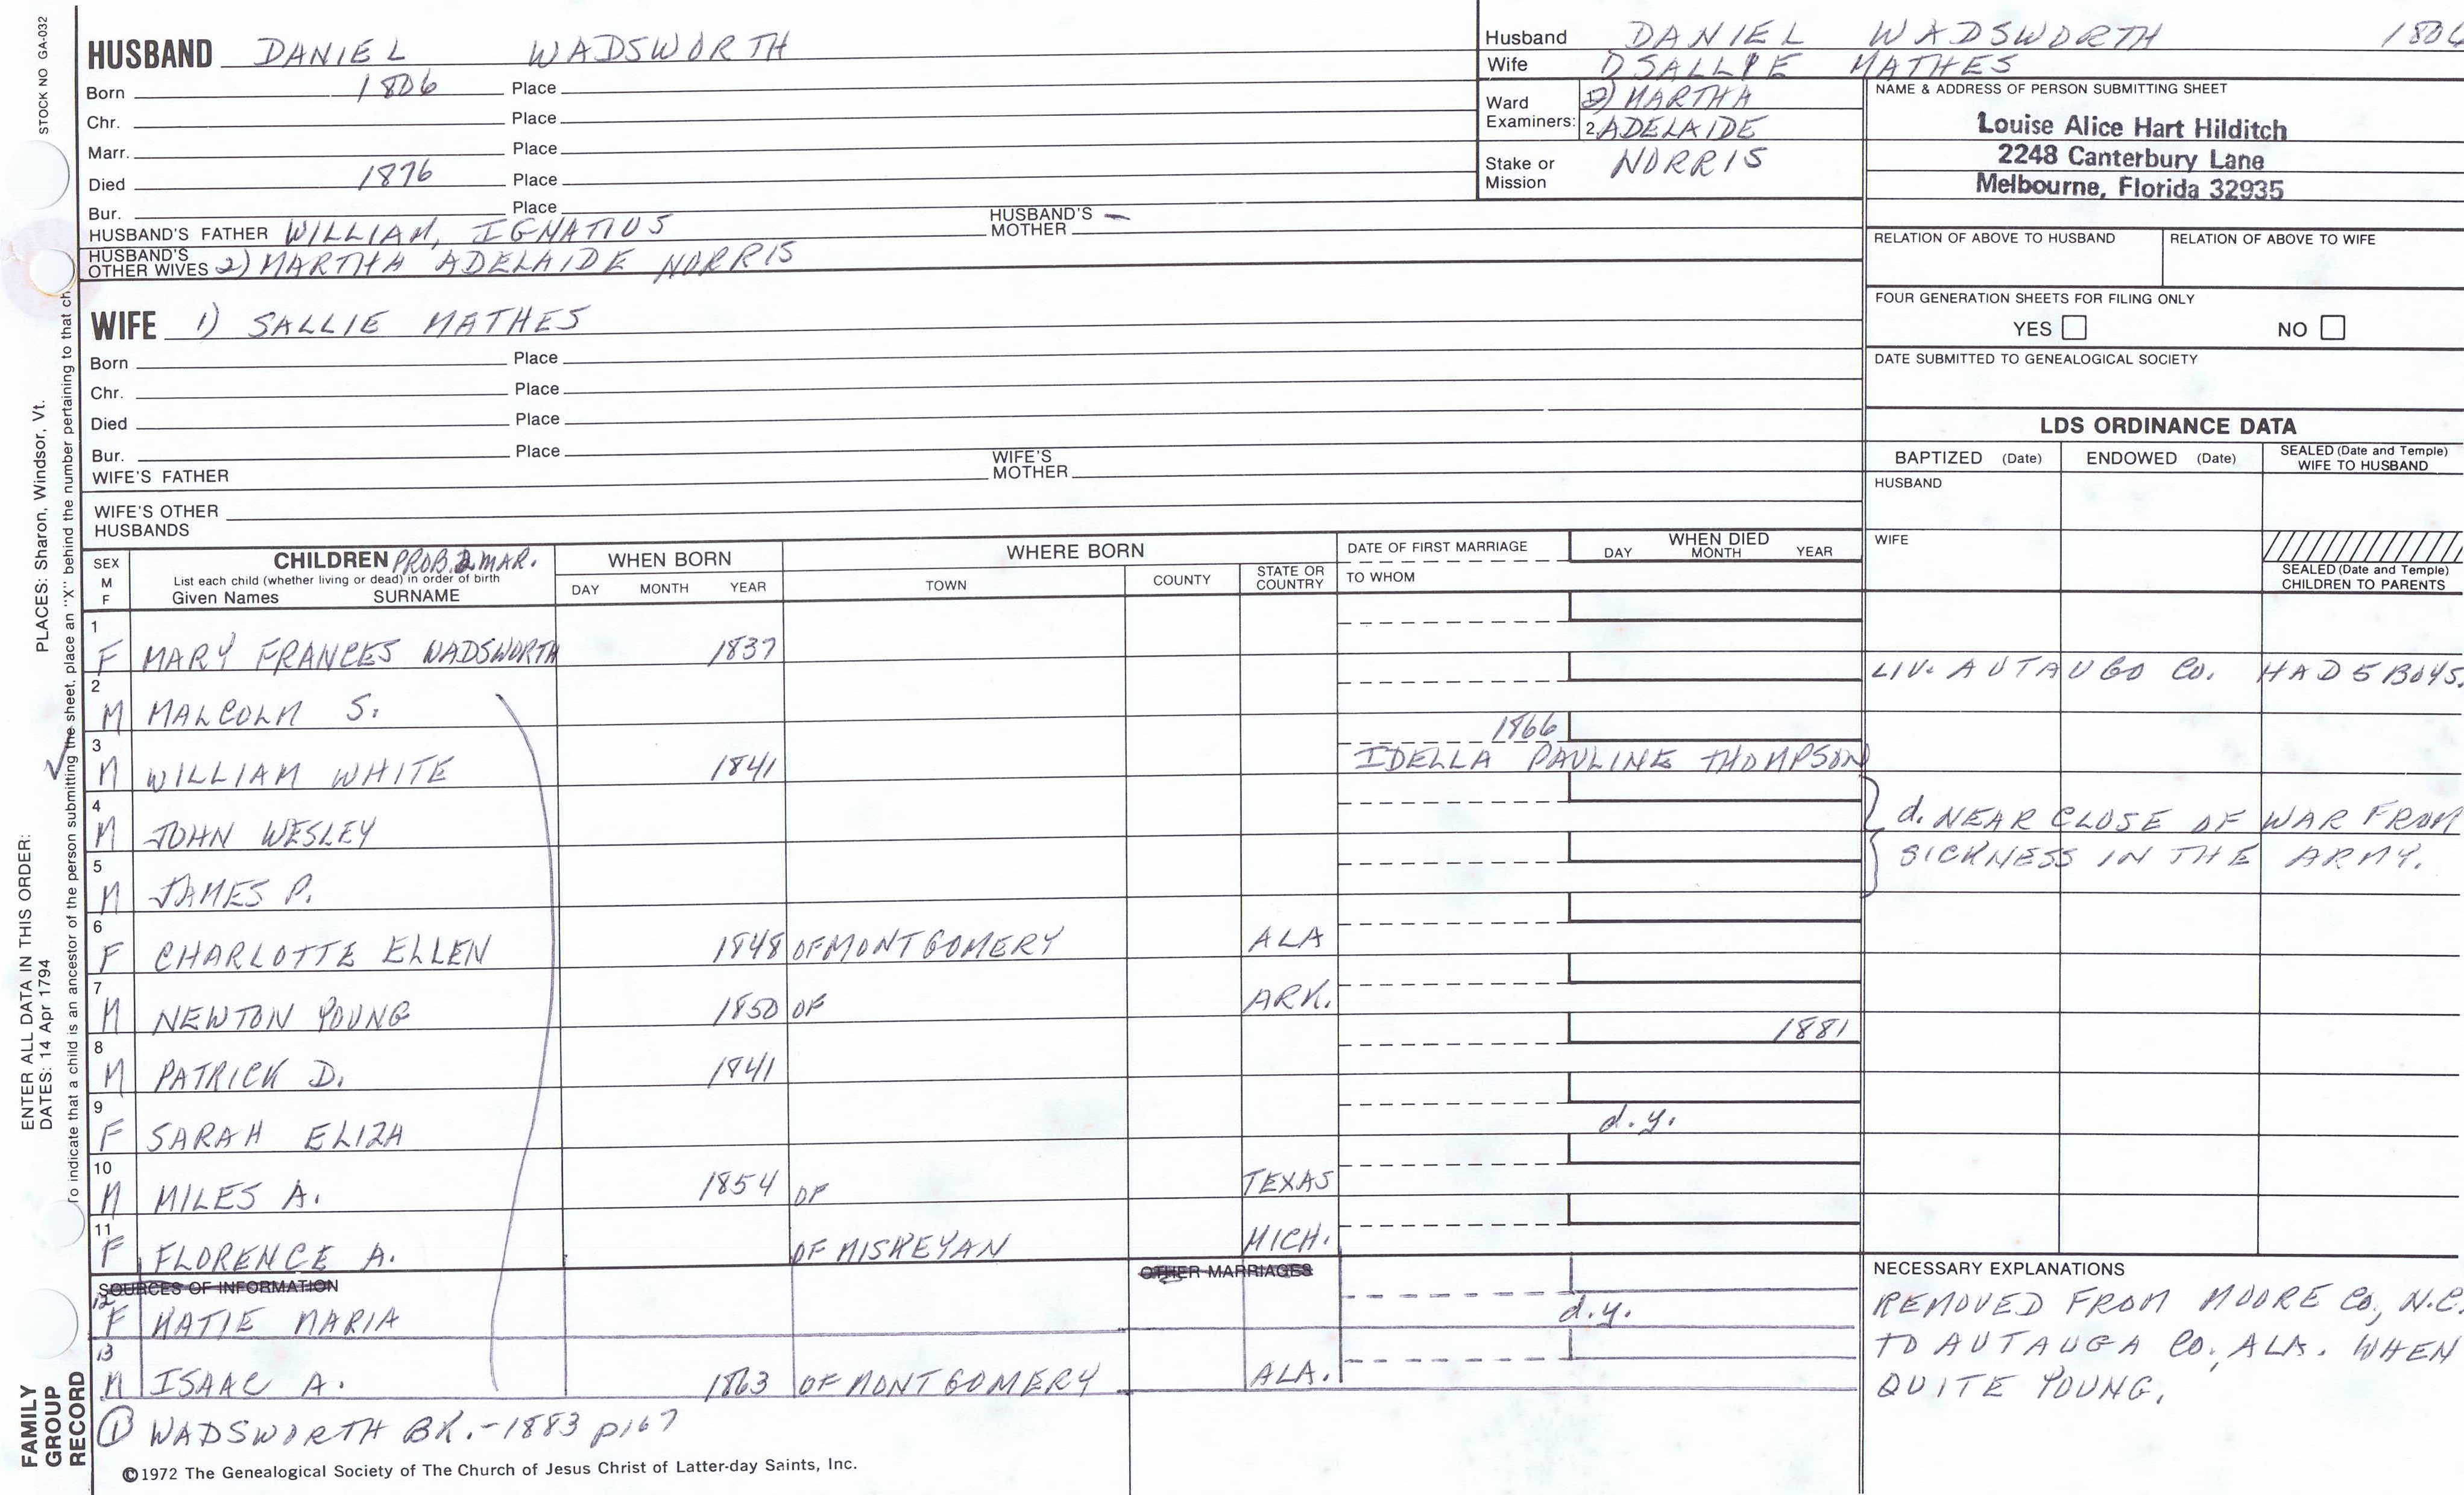 STOCK NO GA-032
HUSBAND DANIEL WADSWORTH
Born 1806 Place
Chr. Place
Marr. Place
Died 1876 Place
Bur. Place
HUSBAND'S FATHER WILLIAM, IGNATIUS HUSBAND'S MOTHER –
HUSBAND'S OTHER WIVES 2) MARTHA ADELAIDE NORRIS
WIFE 1) SALLIE MATHES
Born Place
Chr. Place
Died Place
Bur. Place
WIFE'S FATHER WIFE'S MOTHER
WIFE'S OTHER HUSBANDS
Husband DANIEL WADSWORTH 180
Wife 1) SALLIE MATHES
Ward Examiners: 2) MARTHA
2. ADELAIDE
Stake or Mission NORRIS
NAME & ADDRESS OF PERSON SUBMITTING SHEET
Louise Alice Hart Hilditch
2248 Canterbury Lane
Melbourne, Florida 32935
RELATION OF ABOVE TO HUSBAND RELATION OF ABOVE TO WIFE
FOUR GENERATION SHEETS FOR FILING ONLY
YES NO
DATE SUBMITTED TO GENEALOGICAL SOCIETY
LDS ORDINANCE DATA
BAPTIZED (Date) ENDOWED (Date) SEALED (Date and Temple) WIFE TO HUSBAND
HUSBAND
WIFE
SEALED (Date and Temple) CHILDREN TO PARENTS
SEX M F CHILDREN PROB. 2 MAR. WHEN BORN WHERE BORN DATE OF FIRST MARRIAGE WHEN DIED
List each child (whether living or dead) in order of birth
Given Names SURNAME DAY MONTH YEAR TOWN COUNTY STATE OR COUNTRY TO WHOM DAY MONTH YEAR
1 F MARY FRANCES WADSWORTH 1837
LIV. AUTAUGO CO. HAD 5 BOYS.
2 M MALCOLM S.
3 M WILLIAM WHITE 1841 1866 IDELLA PAULINE THOMPSON
4 M JOHN WESLEY
5 M JAMES P.
d. NEAR CLOSE OF WAR FROM
SICKNESS IN THE ARMY.
6 F CHARLOTTE ELLEN 1848 OF MONTGOMERY ALA
7 M NEWTON YOUNG 1850 OF ARK.
8 M PATRICK D. 1841 1881
9 F SARAH ELIZA d.y.
10 M MILES A. 1854 OF TEXAS
11 F FLORENCE A. OF MISKEYAN MICH.
SOURCES OF INFORMATION OTHER MARRIAGES
12 F KATIE MARIA d.y.
13 M ISAAC A. 1863 OF MONTGOMERY ALA.
① WADSWORTH BK. – 1883 p167
©1972 The Genealogical Society of The Church of Jesus Christ of Latter-day Saints, Inc.
NECESSARY EXPLANATIONS
REMOVED FROM MOORE CO., N.C.
TO AUTAUGA CO., ALA. WHEN
QUITE YOUNG.
PLACES: Sharon, Windsor, Vt.
ENTER ALL DATA IN THIS ORDER:
DATES: 14 Apr 1794
To indicate that a child is an ancestor of the person submitting the sheet, place an "X" behind the number pertaining to that ch
FAMILY
GROUP
RECORD